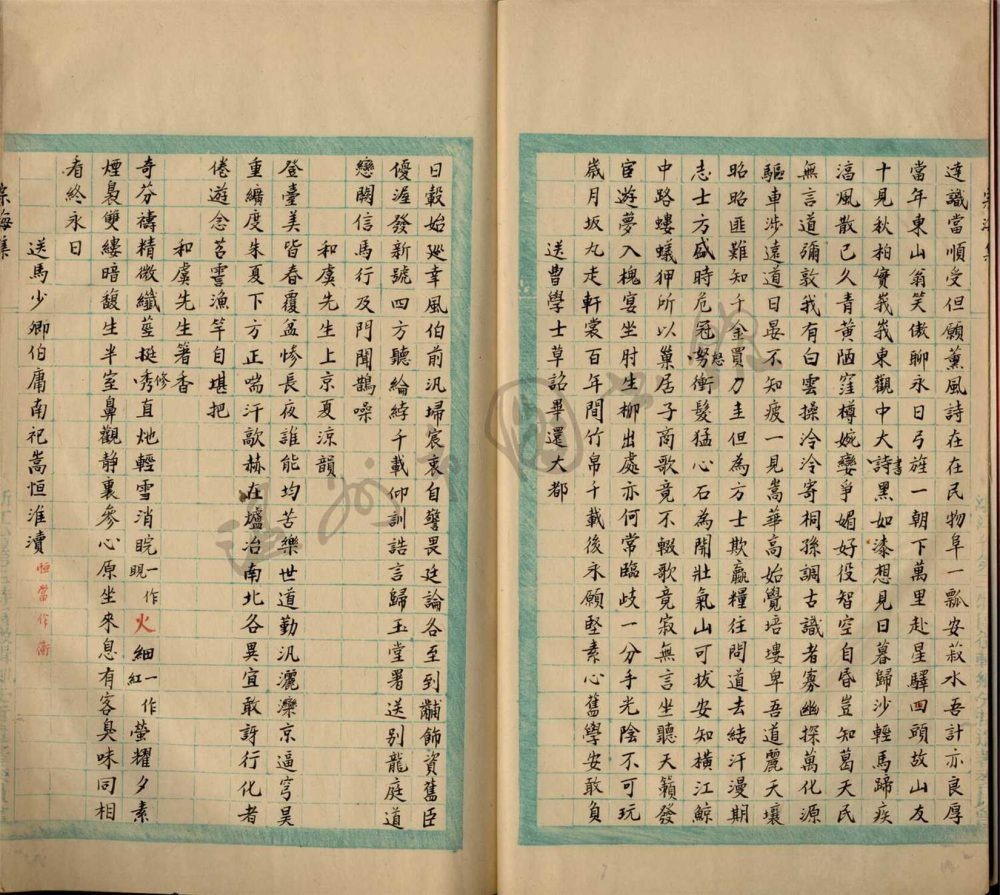 達識當順受但願薰風詩在在民物阜一瓢安菽水吾計亦良厚
當年東山翁笑傲聊永日弓旌一朝下萬里赴星驛回頭故山友
十見秋柏實峩峩東觀中大詩書黑如漆想見日暮歸沙輕馬歸疾
湻風散已久青黃陋窪樽婉孌爭媚好役智空自昏豈知葛天民
無言道彌敦我有白雲操泠泠寄桐孫調古識者寡幽探萬化源
驅車涉遠道日晏不知疲一見嵩華高始覺培塿卑吾道麗天壤
昭昭匪難知千金買刀圭但為方士欺贏糧往問道去結汗漫期
志士方盛時危冠努怒衝髮猛心石為開壯氣山可拔安知橫江鯨
中路螻蟻狎所以巢居子商歌竟不輟歌竟寂無言坐聽天籟發
宦遊夢入槐宴坐肘生柳出處亦何常臨歧一分手光陰不可玩
歲月坂丸走軒裳百年間竹帛千載後永願堅素心舊學安敢負
送曹學士草詔畢還大都
日轂始廵幸風伯前汎埽宸衷自寅畏廷論各至到黼飾資舊臣
優渥發新號四方聽綸綍千載仰訓誥言歸玉堂署送別龍庭道
戀闕信馬行及門聞鵲噪
和虞先生上京夏涼韻
登臺美皆春覆盆慘長夜誰能均苦樂世道勤汎灑灤京逼穹昊
重纊度朱夏下方正喘汗歊赫在爐冶南北各異宜敢訝行化者
倦遊念苕霅漁竿自堪把
和虞先生箸香
奇芬禱精微纖莖挺嗁修直灺輕雪消睆晛一作火細紅一作螢耀夕素
煙裊雙縷暗馥生半室鼻觀靜裏參心原坐來息有客臭味同相
看終永日
送馬少卿伯庸南祀嵩恒淮瀆
恒當作衡